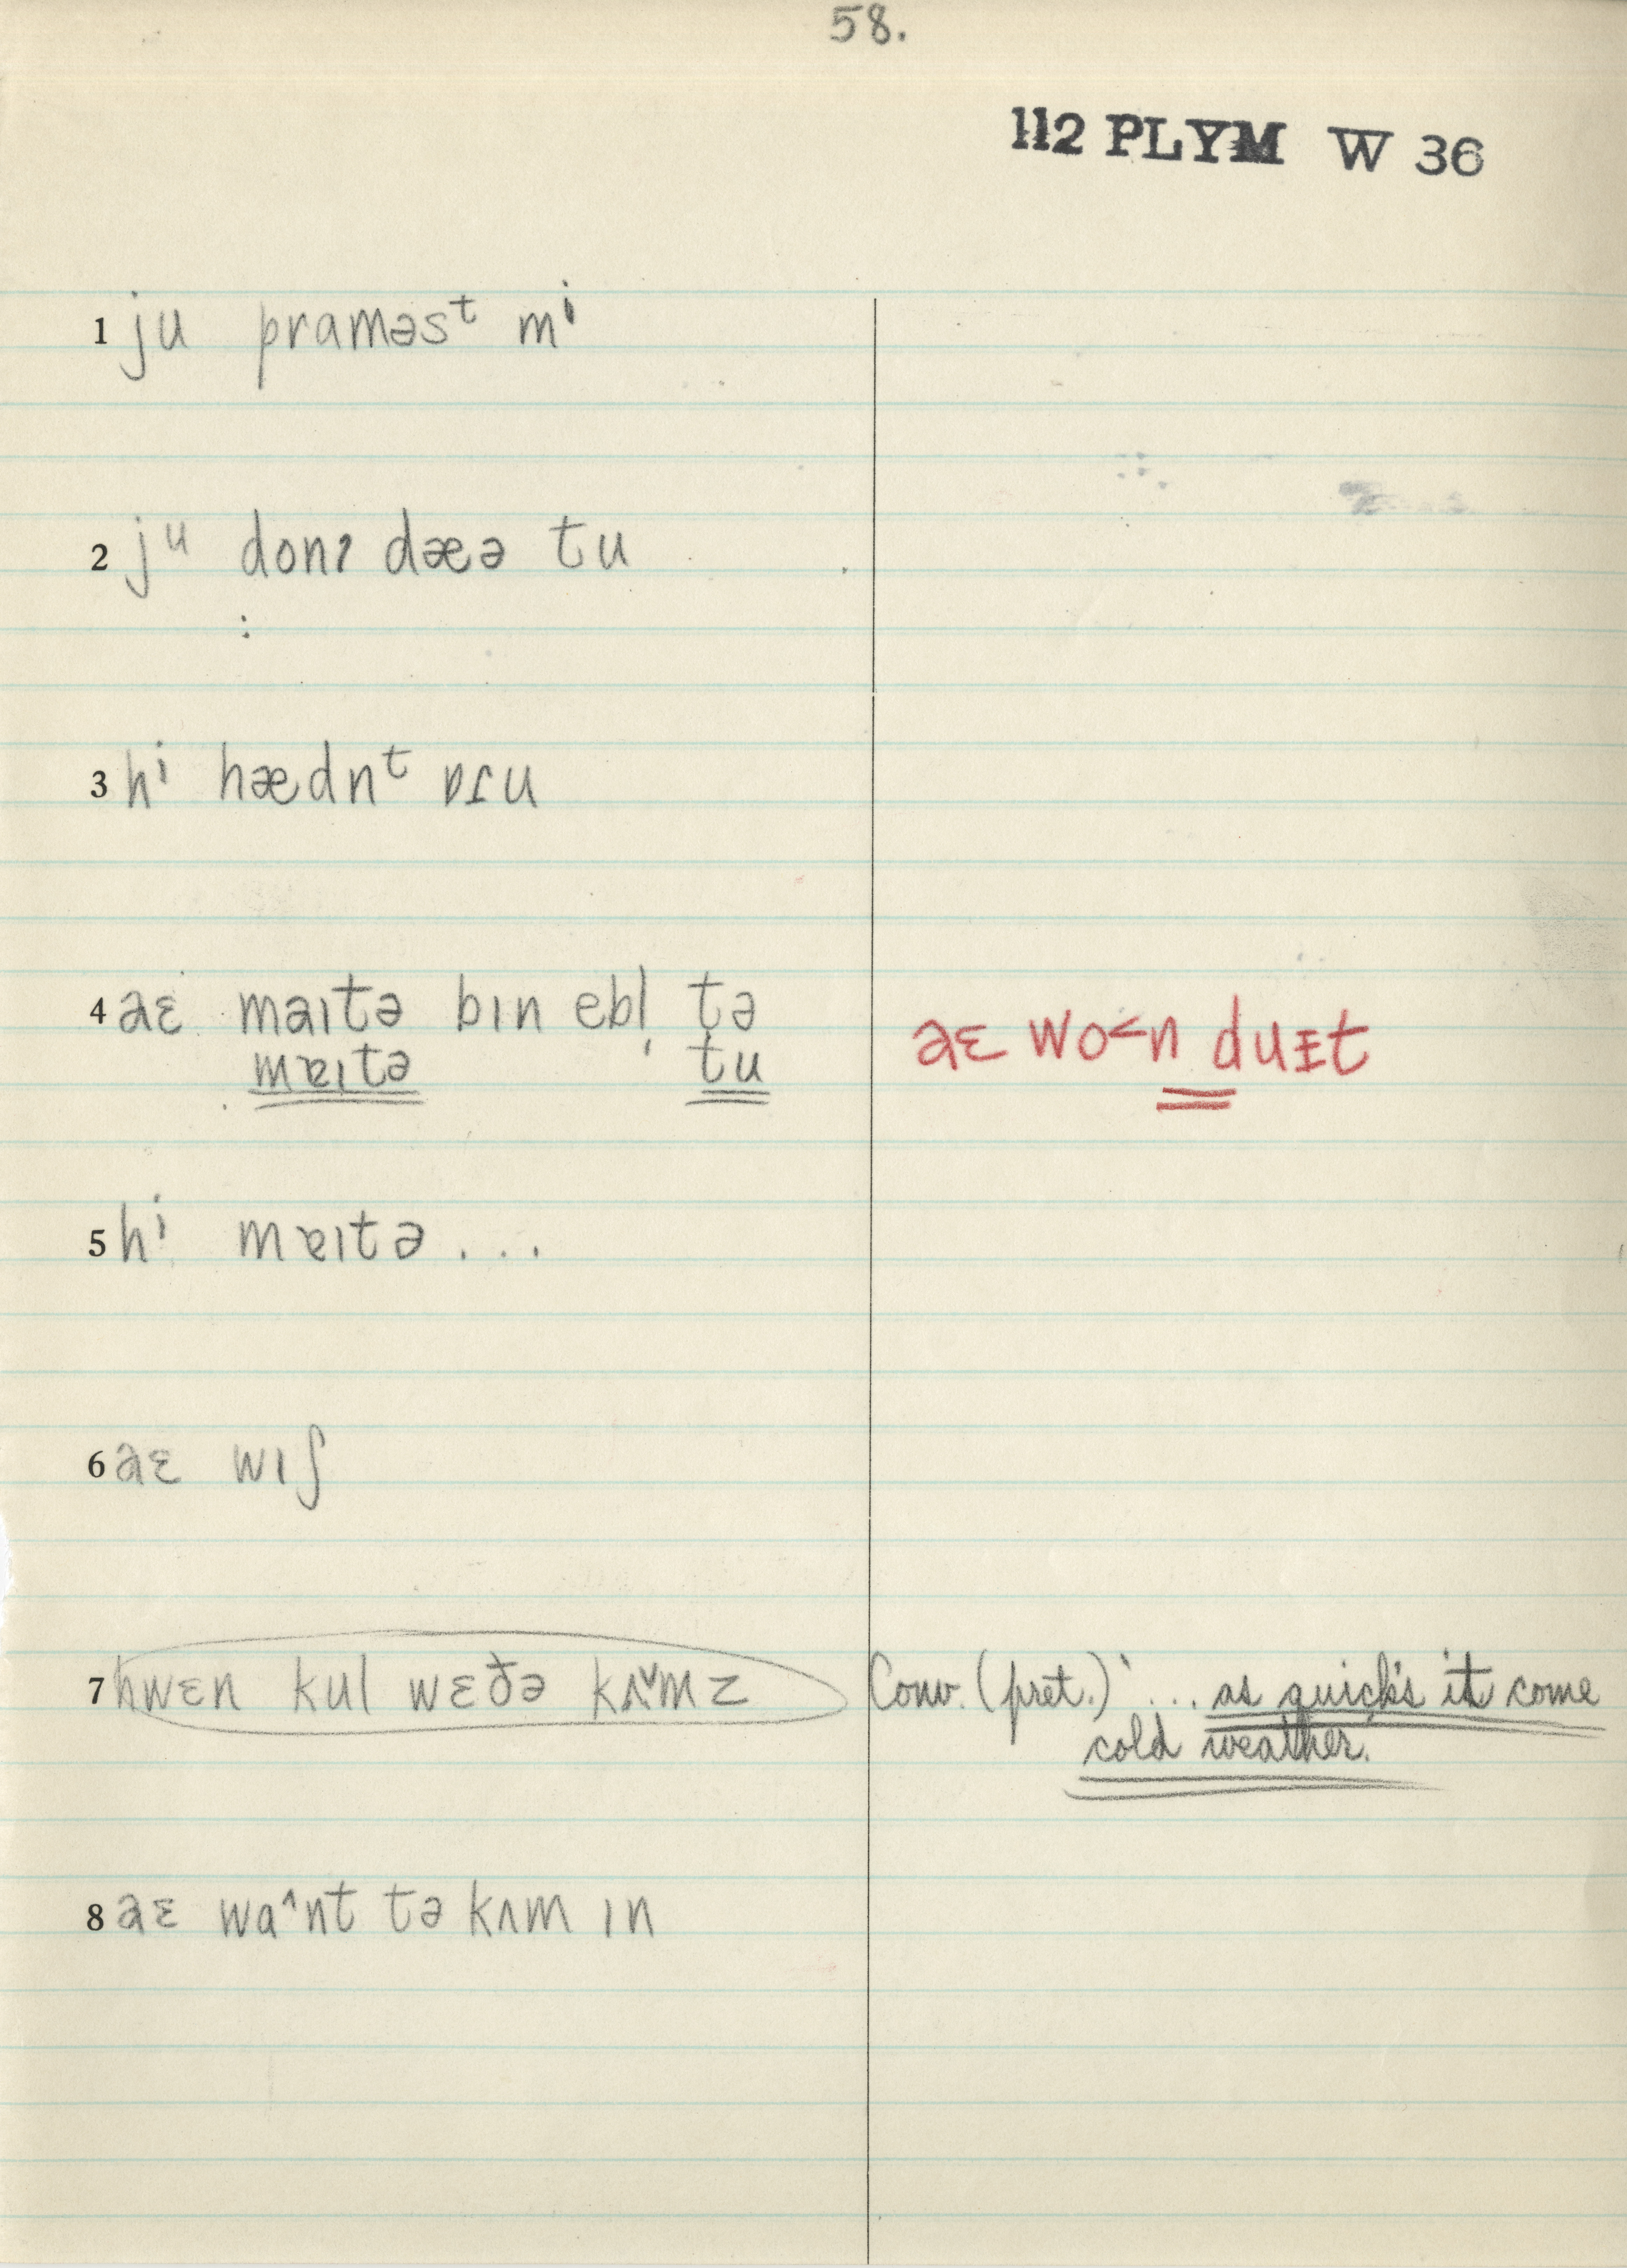 58.
112 PLYM W 36
1 ju praməsᵗ mⁱ
2 jᵘ donʔ dæə tu
:
3 hⁱ hædnᵗ ɒɾu
4 aɛ maɪtə bɪn ebl̩ tə
mɐɪtə tu
aɛ wo<n duᴇt
5 hⁱ mɐɪtə ...
6 aɛ wɪʃ
7 hwɛn kul wɛðə kʌ˅mz
Conv. (pret.) ... as quick's it come
cold weather.
8 aɛ wa^nt tə kʌm ɪn